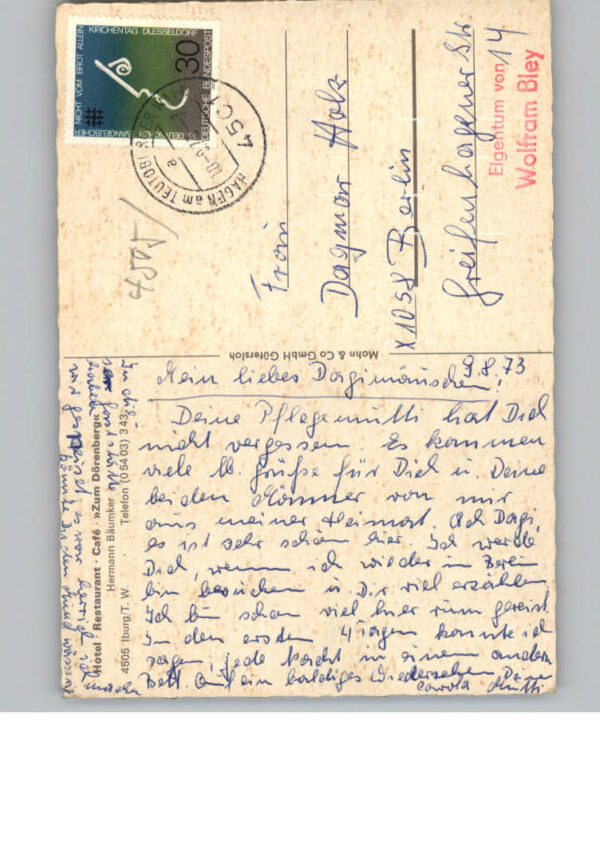 9.8.73
Mein liebes Dagimäuschen!
Deine Pflegemutti hat Dich
nicht vergessen. Es kommen
viele lb. Grüße für Dich u. Deine
beiden Männer von mir
aus meiner Heimat. Ach Dagi,
es ist sehr schön hier. Ich werde
Dich, wenn ich wieder in Berlin
bin besuchen u. Dir viel erzählen
Ich bin schon viel hier rum gereist
In den ersten 4 Tagen konnte ich
sagen, jede Nacht in einem andern
Bett. Auf ein baldiges Wiedersehen Deine
Carola Mutti
In
haben
wir gespeist es war herrlich ich
könnte Dir den Mund wässrig
machen
Hotel · Restaurant · Café · »Zum Dörenberg«
Hermann Bäumker
4505 Iburg/T. W. · Telefon (05403) 343
Mohn & Co GmbH Gütersloh
Frau
Dagmar Holz
X1058 Berlin
Greifenhagener Str.
14
Eigentum von
Wolfram Bley
4505/
NICHT VOM BROT ALLEIN
KIRCHENTAG DUESSELDORF
DEUTSCHER EVANGELISCHER
DEUTSCHE BUNDESPOST
30
HAGEN am TEUTOBURGER
4501
a